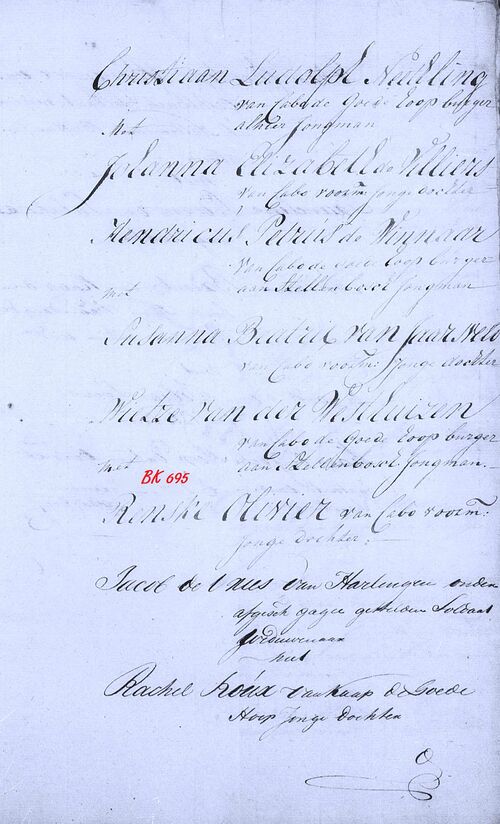 Christiaan Ludolph Neethling
van Cabo de Goede Hoop burger
alhier Jongman
Met
Johanna Elizabeth de Villiers
van Cabo voorm: Jonge dochter
Hendricus Petrus de Winnaar
van Cabo de Goede Hoop burger
aan Stellenbosch Jongman
met
Susanna Beatrix van Jaarsveld
van Cabo voorm: Jonge dochter
van der Westhuizen
van Cabo de Goede Hoop burger
met aan Stellenbosch Jongman
BK 695
Renske Olivier van Cabo voorm:
Jonge dochter:
Jacob de Vries van Harlingen onder
afgesch gagie gestelden Soldaat
Weduwenaar
met
Rachel Roúx van Kaap de Goede
Hoop Jonge Dochter